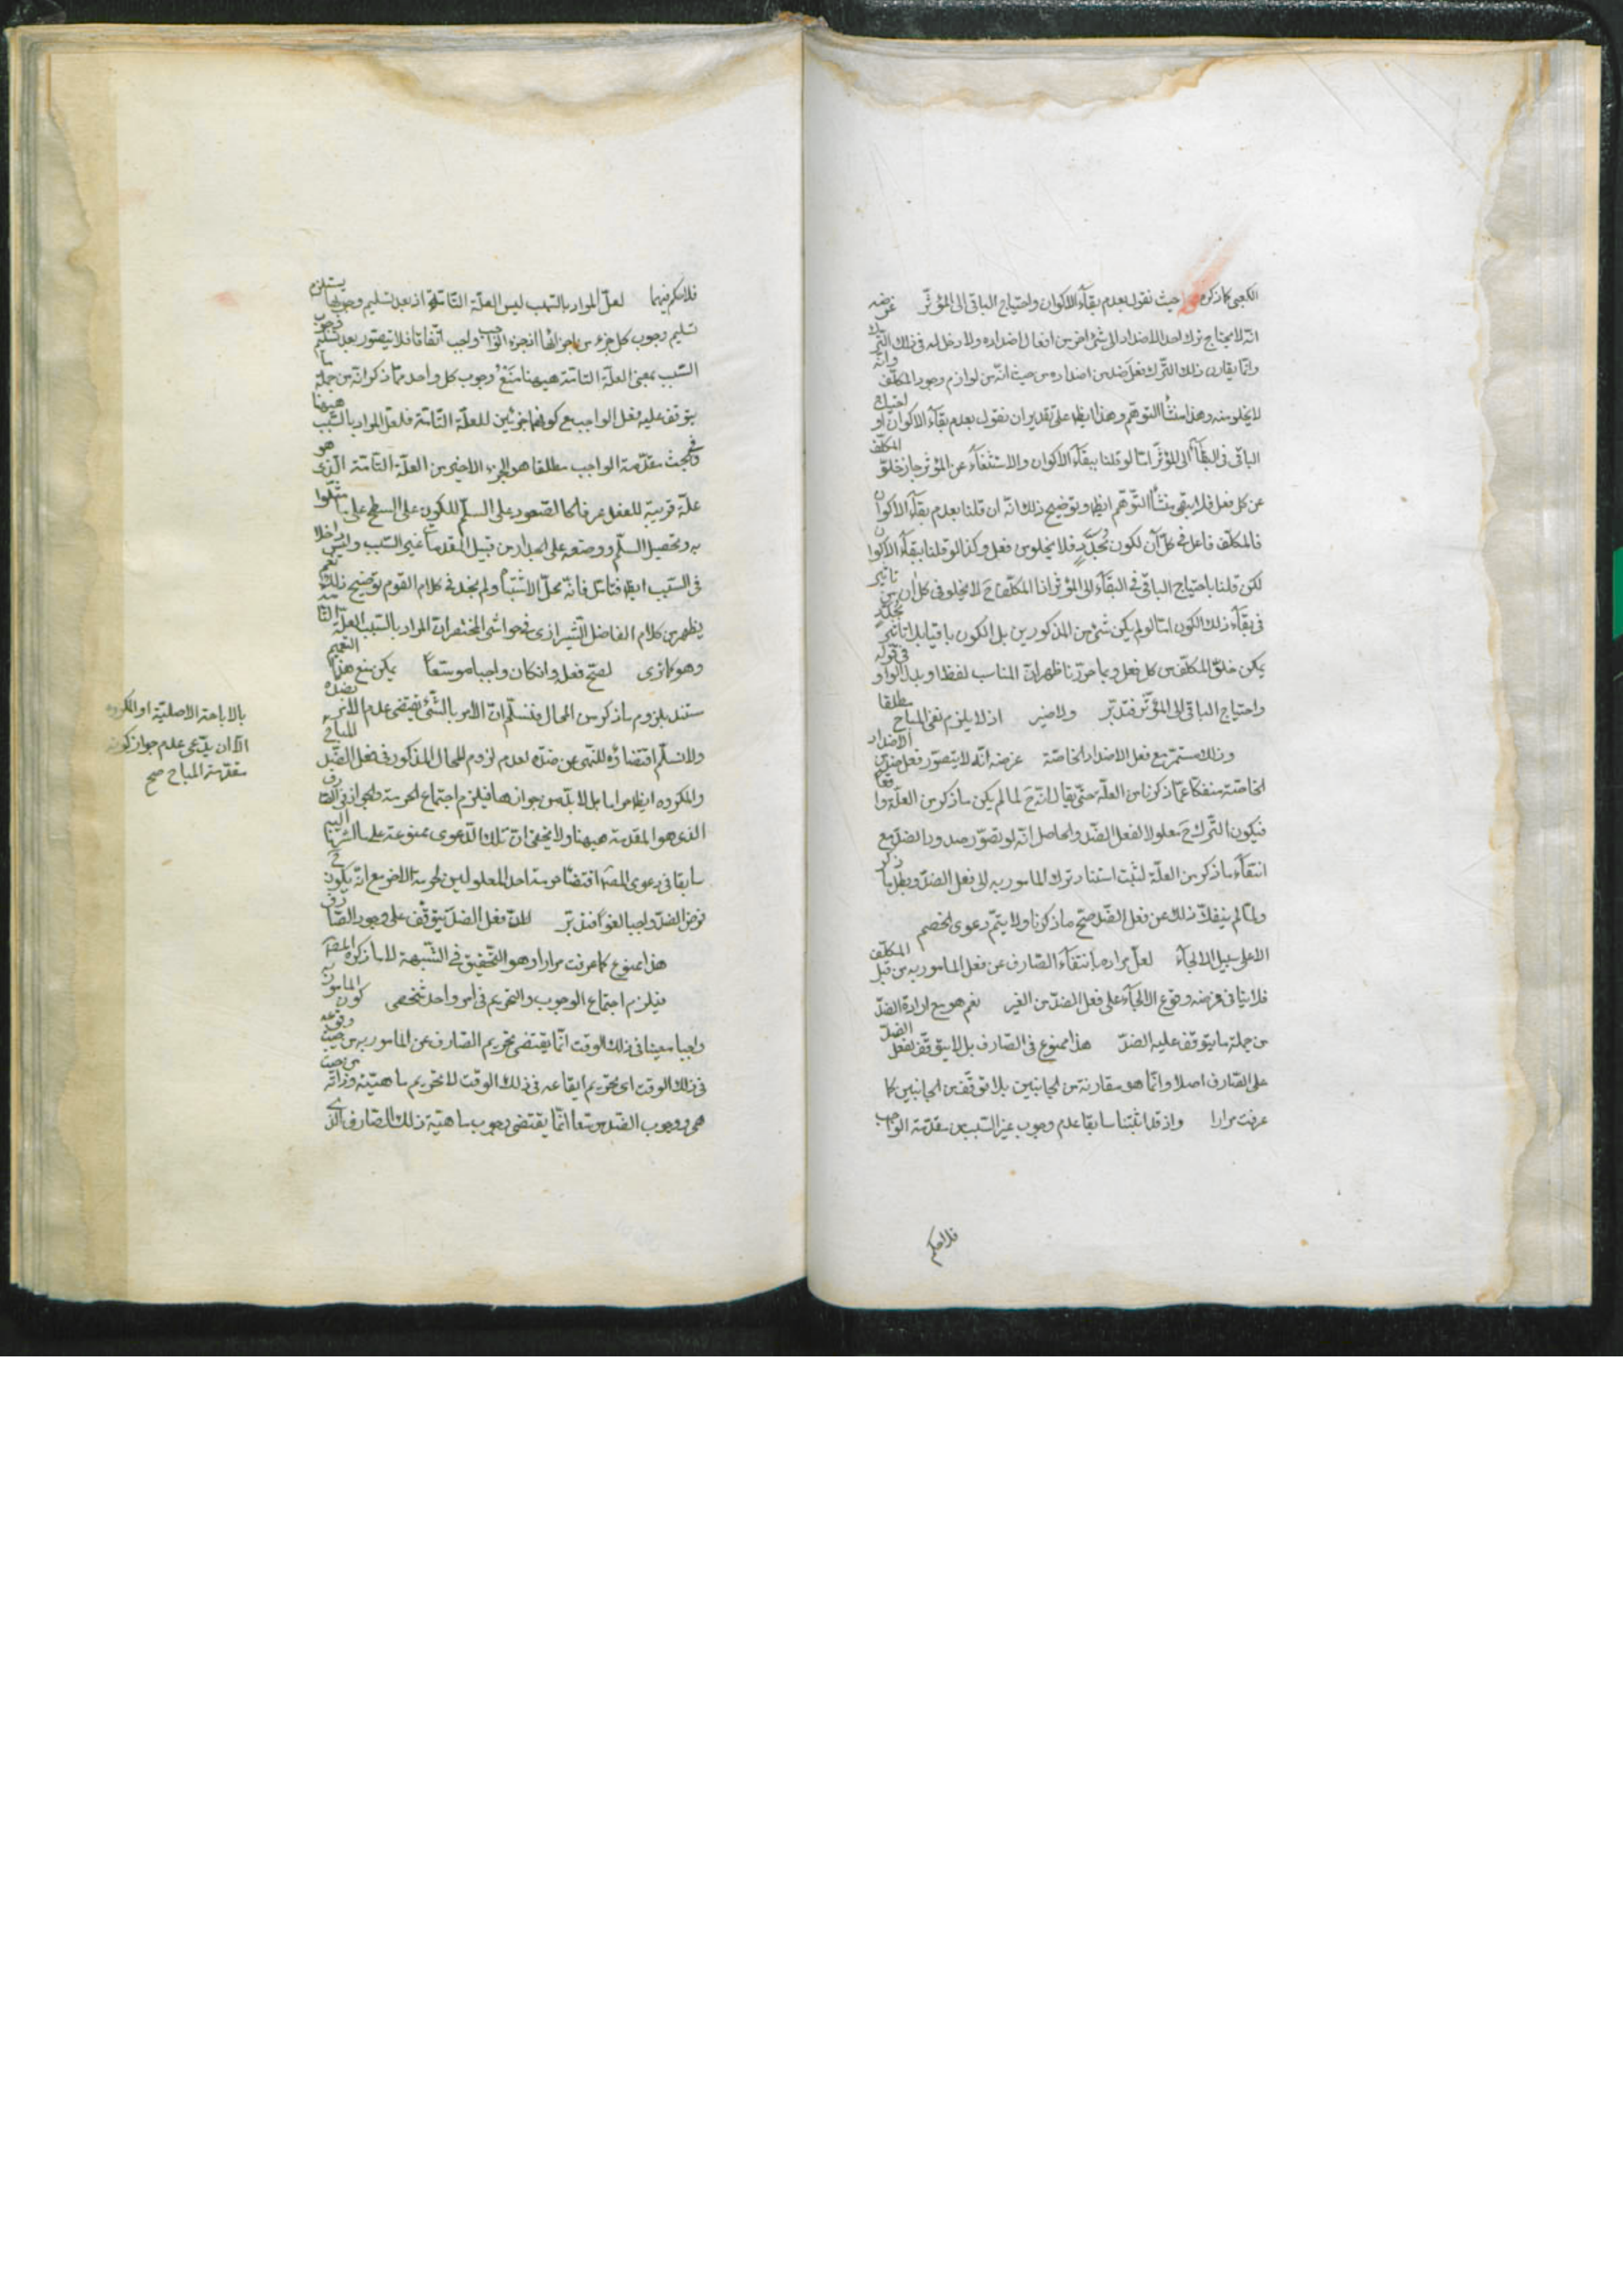 الكعبى كما ذكره حيث نقول بعدم بقاء الاكوان واحتياج الباقى الى المؤثر غرضه
انه لا يحتاج ترك احد الاضداد الى شئ اخر من افعال اضداده ولا دخل له فى ذلك الترك
وانما يقارن ذلك الترك فعل ضد من اضداده من حيث انه من لوازم وجود المكلف وانه
لا يخلو منه وهذا منشأ التوهم وهذا ايضا على تقدير ان نقول بعدم بقاء الاكوان او احتياج
الباقى فى البقاء الى المؤثر اما لو قلنا ببقاء الاكوان والاستغناء عن المؤثر جاز خلو المكلف
عن كل فعل فلا يبقى منشأ التوهم ايضا وتوضيح ذلك انه ان قلنا بعدم بقاء الاكوان
فالمكلف فاعل فى كل آن لكون مجدد فلا يخلو من فعل وكذا لو قلنا ببقاء الاكوان
لكن قلنا باحتياج الباقى فى البقاء الى المؤثر اذا المكلف ح لا يخلو فى كل ان من تاثير
فى بقاء ذلك الكون اما لو لم يكن شئ من المذكورين بل الكون باقيا بلا تاثير مجدد
يمكن خلو المكلف من كل فعل وبما حررنا ظهر ان المناسب لفظ او بدل الواو فى قوله
واحتياج الباقى الى المؤثر فتدبر ولا ضير اذ لا يلزم نفى المباح مطلقا
وذلك مستمر مع فعل الاضداد الخاصة غرضه انه لا يتصور فعل ضد من الاضداد
الخاصة منفكا عما ذكرنا من العلة حتى يقال انه ح لما لم يكن ما ذكر من العلة واقعا
فيكون الترك ح معلولا لفعل الضد والحاصل انه لو تصور صدور الضد مع
انتفاء ما ذكر من العلة لثبت استناد ترك المامور به الى فعل الضد وبطل ما ذكر
ولما لم ينفك ذلك عن فعل الضد صح ما ذكرنا ولا يتم دعوى الخصم
الا على سبيل الالجاء لعل مراده بانتفاء الصارف عن فعل المامور به من قبل المكلف
فلا ينافى فرضه وقوع الالجاء على فعل الضد من الغير نعم هو مع ارادة الضد
من جملة ما يتوقف عليه الضد هذا ممنوع فى الصارف بل لا يتوقف فعل الضد
على الصارف اصلا وانما هو مقارنة من الجانبين بلا توقف من الجانبين كما
عرفت مرارا واذ قد اثبتنا سابقا عدم وجوب غير السبب من مقدمة الواجب
فلا حكم
فلا حكم فيهما لعل المراد بالسبب ليس العلة التامة اذ بعد تسليم وجوبها يستلزم
تسليم وجوب كل جزء من اجزائها اذ جزء الواجب واجب اتفاقا فلا يتصور بعد تسليم وجوب
السبب بمعنى العلة التامة ههنا منع وجوب كل واحد مما ذكر انه من جملة ما
يتوقف عليه فعل الواجب مع كونهما جزئين للعلة التامة فلعل المراد بالسبب ههنا
وفى بحث مقدمة الواجب مطلقا هو الجزء الاخير من العلة التامة الذى هو
علة قريبة للفعل عرفا كالصعود على السلم للكون على السطح على ما مثلوا
به وتحصيل السلم ووضعه على الجدار من قبيل المقدمات غير السبب وليس داخلا
فى السبب ايضا فتامل فانه محل الاشتباه ولم يجد فى كلام القوم توضيح ذلك نعم
يظهر من كلام الفاضل الشيرازى فى حواشى المختصر ان المراد بالسبب العلة التامة
وهو كما ترى لصح فعله وان كان واجبا موسعا يمكن منع هذا التعميم
مستند بلزوم ما ذكر من المحال فنسلم ان الامر بالشئ يقتضى عدم الامر بضده
ولا نسلم اقتضاؤه للنهى عن ضده لعدم لزوم المحال المذكور فى فعل الضد المباح
والمكروه ايضا حراما بل لا بد من جوازهما فيلزم اجتماع الحرمة والجواز فى الصارف
الذى هو المقدمة ههنا ولا يخفى ان تلك الدعوى ممنوعة على ما اشرنا اليه
سابقا فى دعوى المصـ اقتضاء حرمة احد المعلولين لحرمة الاخر مع انه يكون ح
فرض الضد واجبا لغوا فتدبر لان فعل الضد يتوقف على وجود الصارف
هذا ممنوع كما عرفت مرارا وهو التحقيق فى الشبهة لا ما ذكره المصـ
فيلزم اجتماع الوجوب والتحريم فى امر واحد شخصى كون المامور به
واجبا معينا فى ذلك الوقت انما يقتضى تحريم الصارف عن المامور به من حيث وقوعه
فى ذلك الوقت اى تحريم ايقاعه فى ذلك الوقت لا تحريم ماهيته وذاته من حيث
هى ووجوب الضد موسعا انما يقتضى وجوب ماهية ذلك الصارف الذى
بالاباحة الاصلية او المكروه
الا ان يدعى عدم جواز كون
مقدمة المباح صح